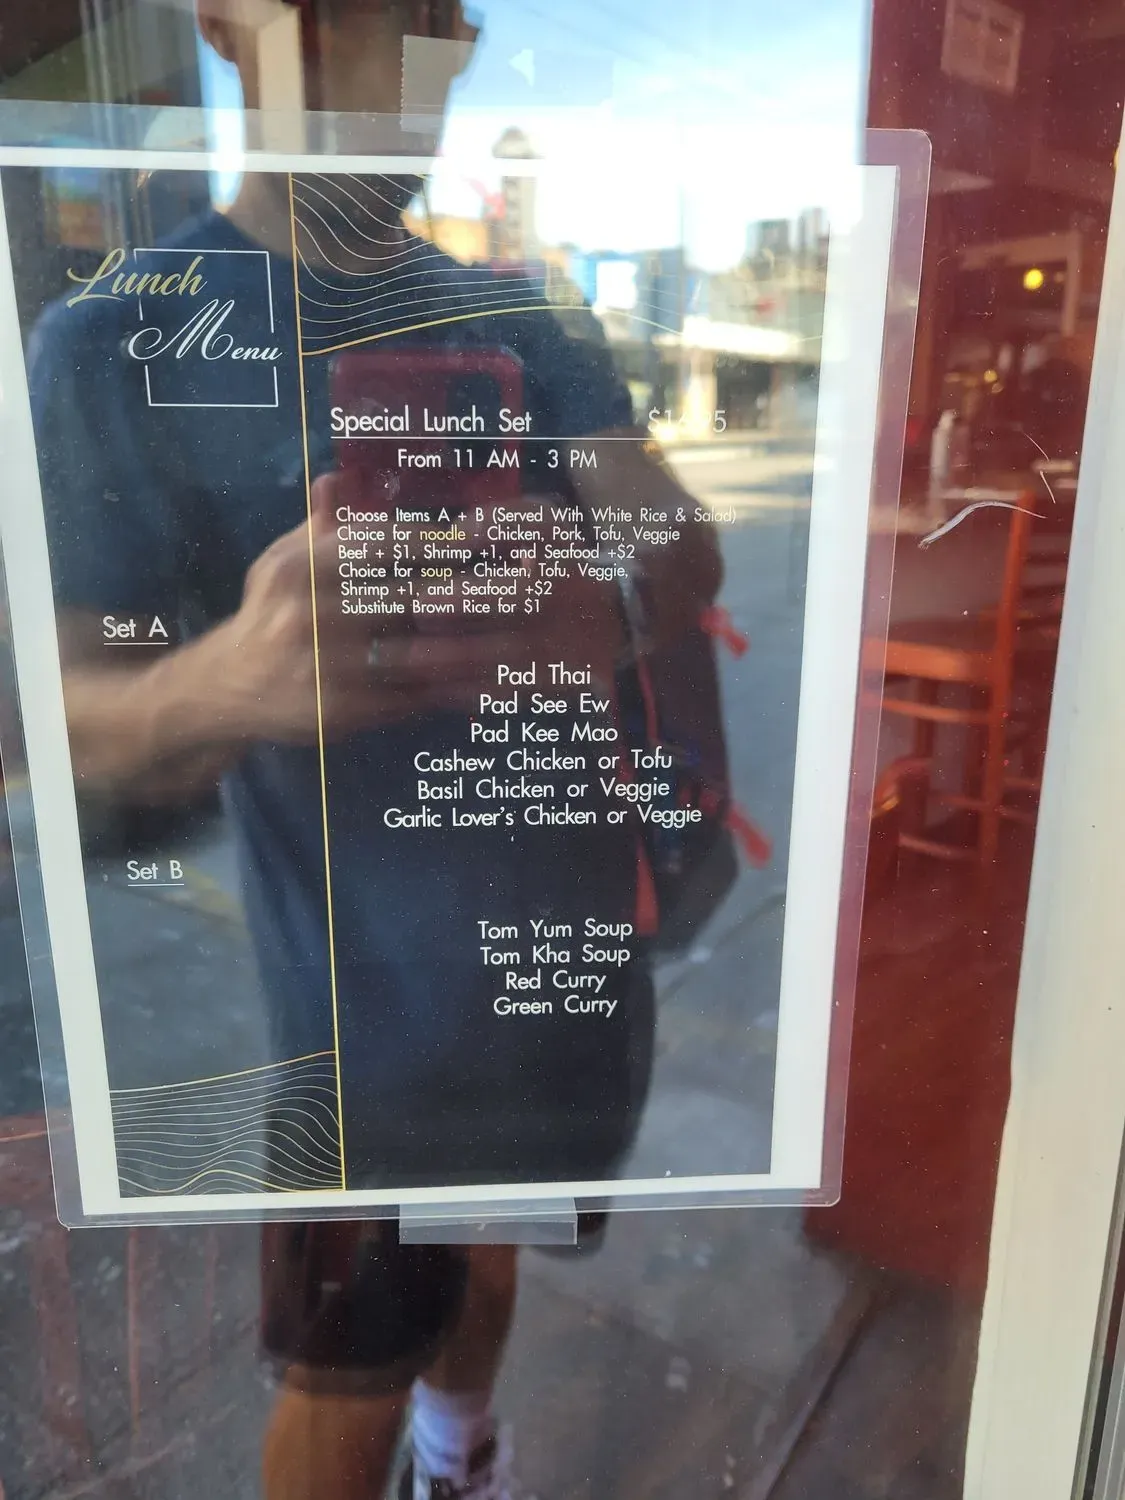 Lunch
Menu
Special Lunch Set
From 11 AM - 3 PM
Choose Items A + B (Served With White Rice & Salad)
Choice for noodle - Chicken, Pork, Tofu, Veggie
Beef + $1, Shrimp +1, and Seafood +$2
Choice for soup - Chicken, Tofu, Veggie,
Shrimp +1, and Seafood +$2
Substitute Brown Rice for $1
Set A
Pad Thai
Pad See Ew
Pad Kee Mao
Cashew Chicken or Tofu
Basil Chicken or Veggie
Garlic Lover's Chicken or Veggie
Set B
Tom Yum Soup
Tom Kha Soup
Red Curry
Green Curry